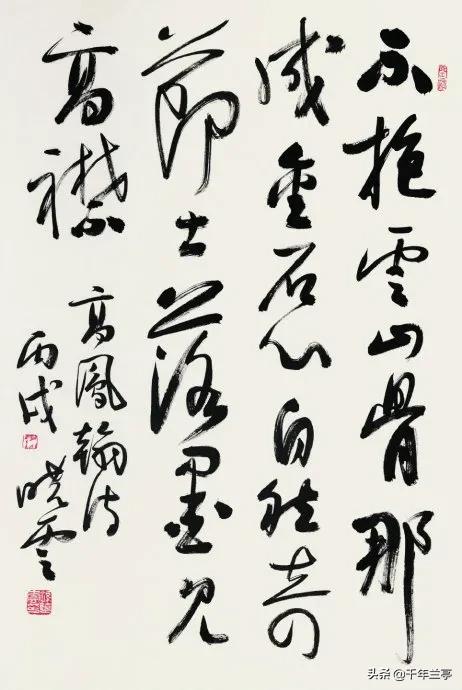 不抱雲山骨那
成金石心自然奇
節士落墨見
高襟
高鳳翰诗
丙戌 晓雲
头条 @千年兰亭